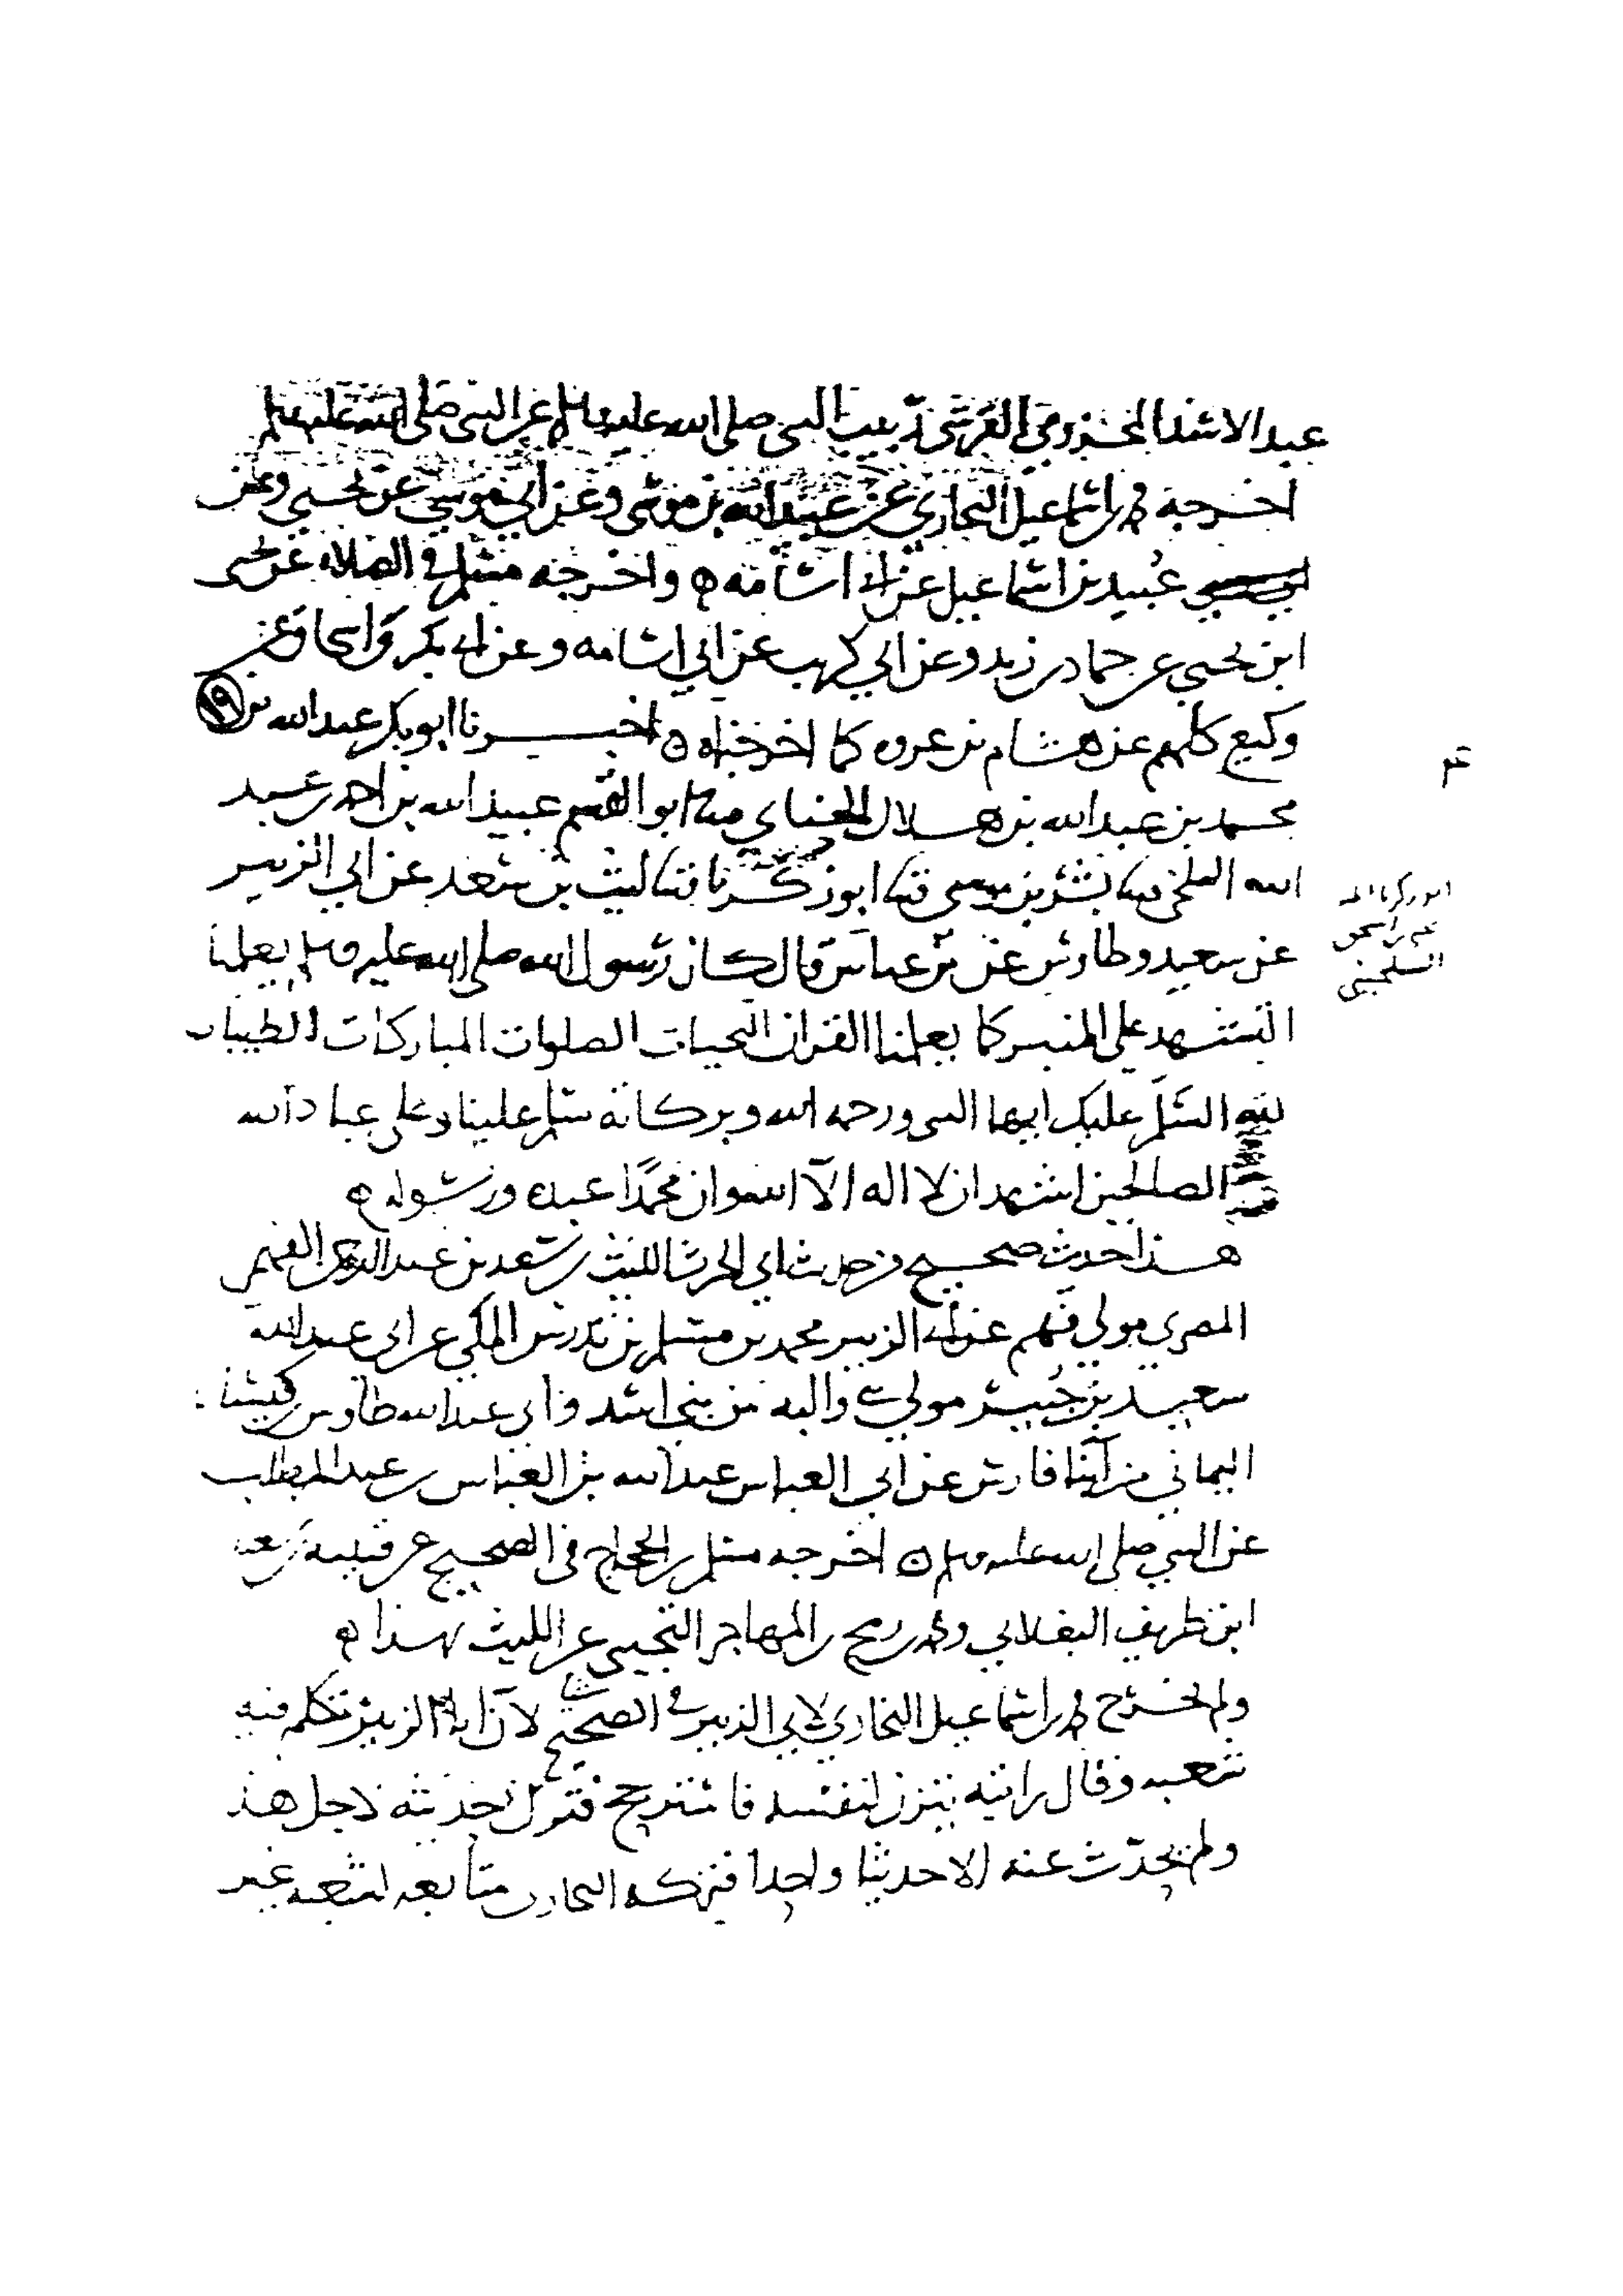 عبد الاسد المخزومي القرشي ربيب النبي صلى الله عليه وسلم عن النبي صلى الله عليه وسلم
اخرجه محمد بن اسماعيل البخاري عن عبيد الله بن موسى وعن ابي موسى عن يحيى وعن
عبيد بن اسماعيل عن ابي اسامه ه واخرجه مسلم في الصلاه عن يحيى
ابن يحيى عن حماد بن زيد وعن ابي كريب عن ابي اسامه وعن ابي بكر واسحاق عن
وكيع كلهم عن هشام بن عروه كما اخرجناه ه اخبرنا ابو بكر عبد الله بن ١٩
محمد بن عبد الله بن هلال الحنائي ثنا ابو القسم عبيد الله بن احمد بن عبيد
الله البلخي ثنا بشر بن موسى ثنا ابو زكريا ثنا ليث بن سعد عن ابي الزبير
ابو زكريا
بن اسحق
السيلحيني
عن سعيد وطاوس عن بن عباس قال كان رسول الله صلى الله عليه وسلم يعلمنا
التشهد على المنبر كما يعلمنا القران التحيات الصلوات المباركات الطيبات
لله السلم عليك ايها النبي ورحمه الله وبركاته سلم علينا وعلى عباد الله
الصالحين اشهد ان لا اله الا الله وان محمدا عبده ورسوله ه
هذا حديث صحيح من حديث ابي الحرث الليث بن سعد بن عبد الرحمن الفهمي
المصري مولى فهم عن ابي الزبير محمد بن مسلم بن تدرس المكي عن ابي عبد الله
سعيد بن جبير مولى والبه من بني اسد وابي عبد الله طاوس بن كيسان
اليماني من آبنا فارس عن ابي العباس عبد الله بن العباس بن عبد المطلب
عن النبي صلى الله عليه وسلم ه اخرجه مسلم بن الحجاج في الصحيح عن قتيبه بن سعيد
ابن طريف البغلاني ومحمد بن رمح بن المهاجر التجيبي عن الليث بهذا ه
ولم يخرج محمد بن اسماعيل البخاري لابي الزبير في الصحيح لان ابا الزبير تكلم فيه
شعبه وقال رايته يتزن لنفسه فاسترجح فترك حديثه لاجل هذا
ولم يحدث عنه الا حديثا واحدا فتركه البخاري متابعه لشعبه غير